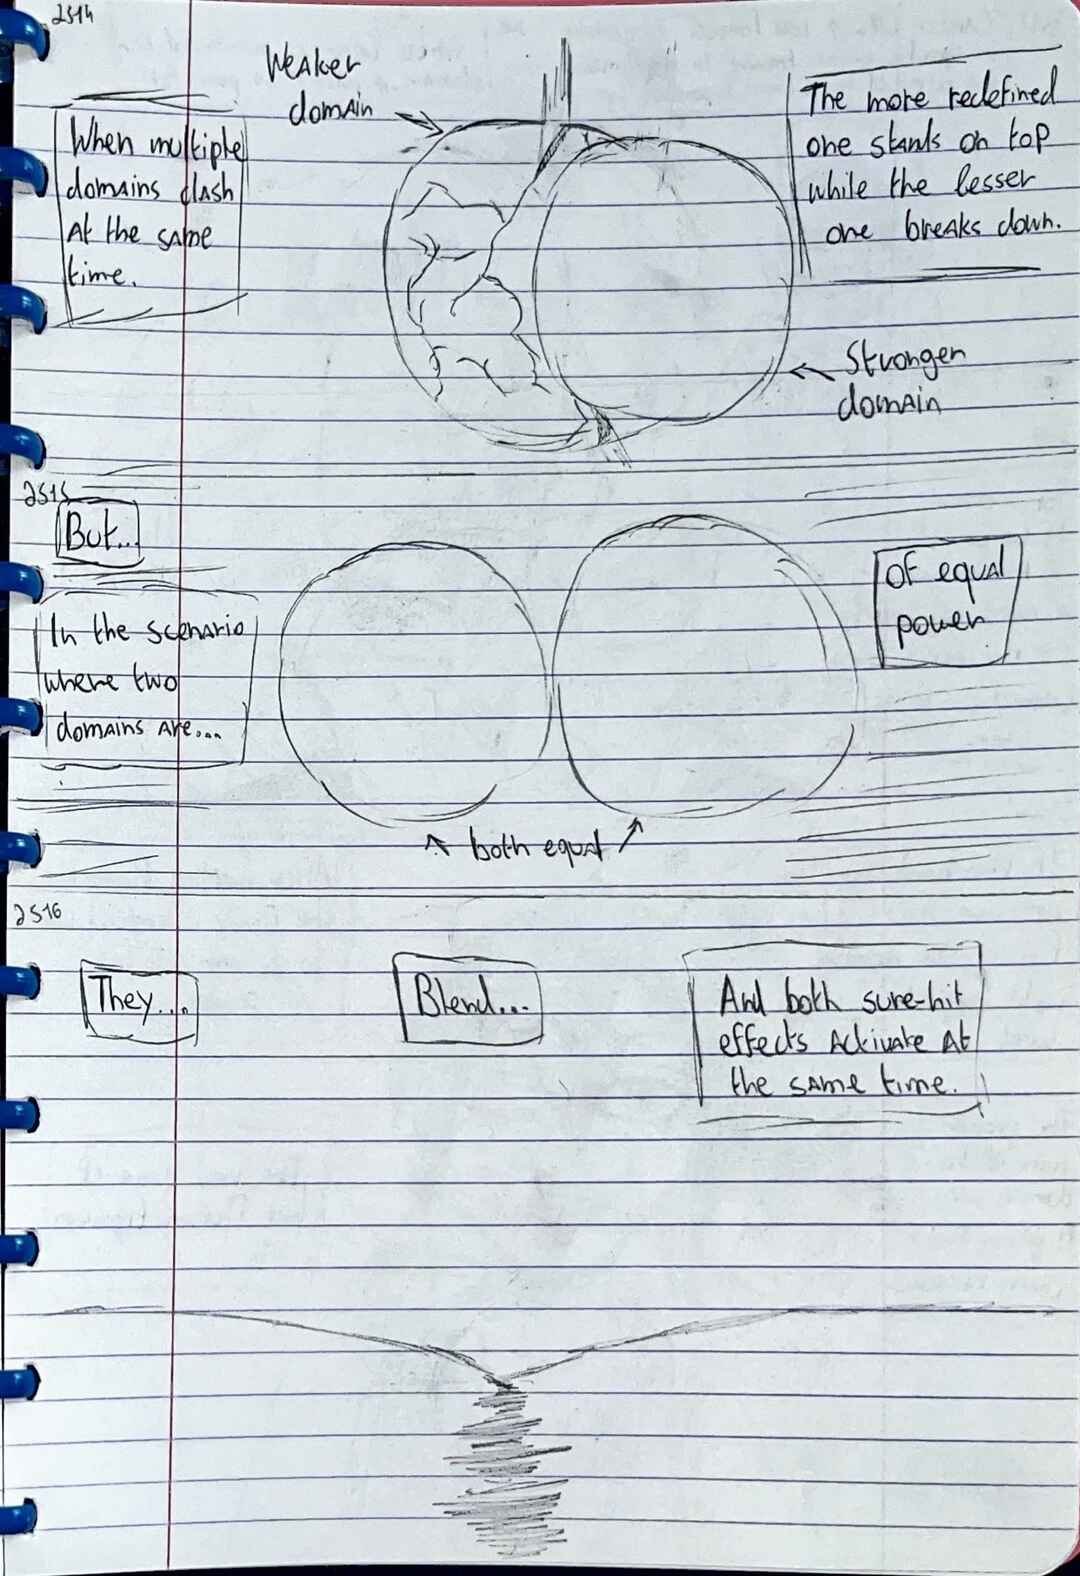 2514
Weaker
domain
When multiple
domains clash
At the same
time.
The more redefined
one stands on top
while the lesser
one breaks down.
Stronger
domain
2515
But...
In the scenario
where two
domains are...
of equal
power
both equal
2516
They....
Blend...
And both sure-hit
effects activate at
the same time.